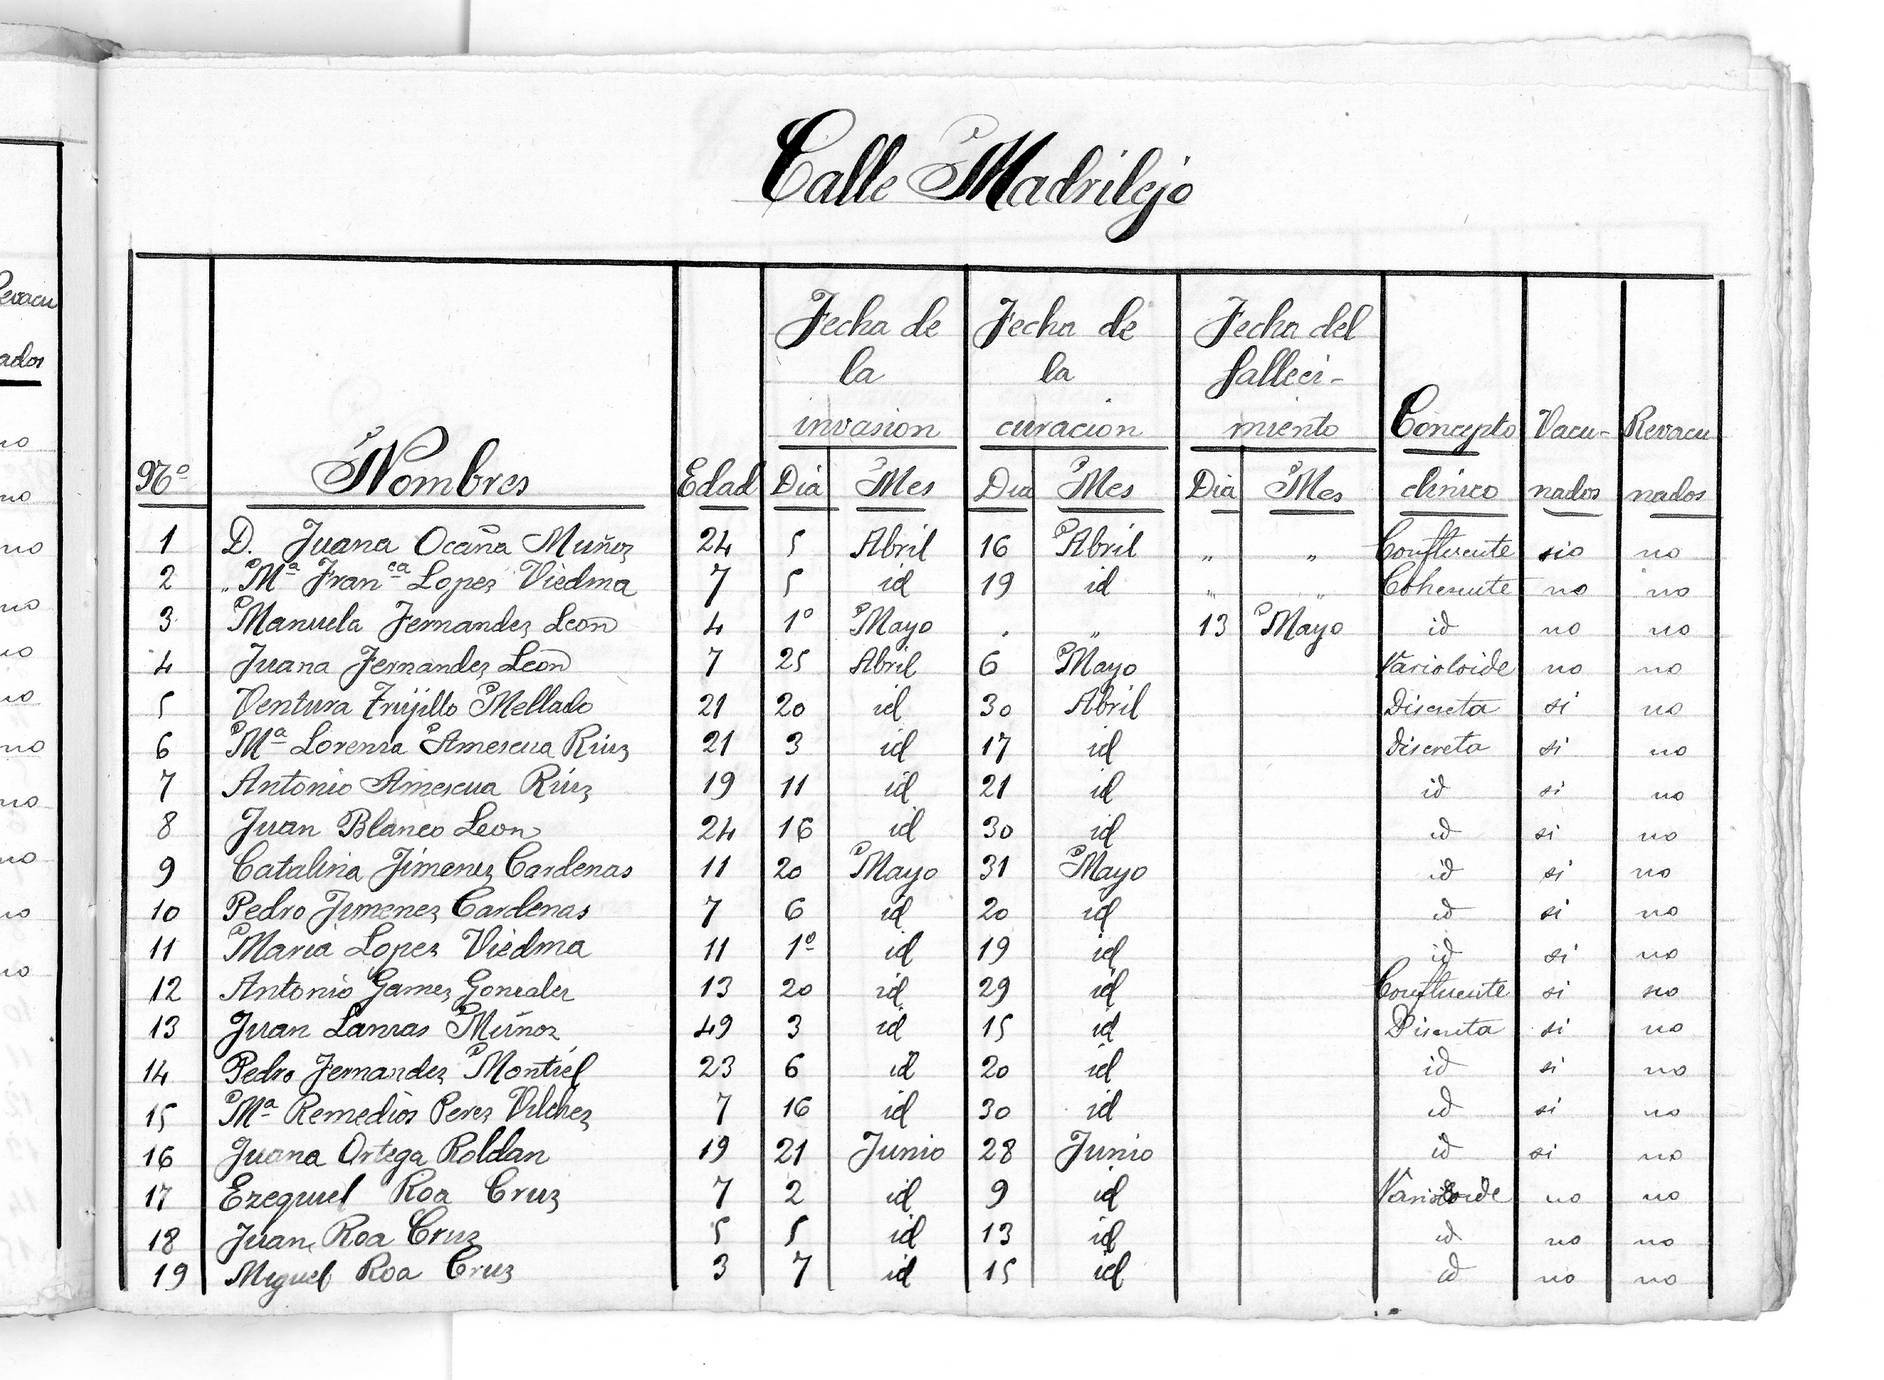 Calle Madrilejo
Revacu
nados
no
no
no
no
no
no
no
no
no
no
no
Fecha de Fecha de Fecha del
la la falleci-
invasion curacion miento Concepto Vacu- Revacu
Nº Nombres Edad Dia Mes Dia Mes Dia Mes clinico nados nados
1 D. Juana Ocaña Muñoz 24 5 Abril 16 Abril " " Confluente no
2 " Mª Franca Lopez Viedma 7 5 id 19 id " " Coherente no no
3 Manuela Fernandez Leon 4 1º Mayo . " 13 Mayo id no no
4 Juana Fernandez Leon 7 25 Abril 6 Mayo Varioloide no no
5 Ventura Trujillo Mellado 21 20 id 30 Abril Discreta si no
6 Mª Lorenza Amescua Ruiz 21 3 id 17 id discreta si no
7 Antonio Amescua Ruiz 19 11 id 21 id id si no
8 Juan Blanco Leon 24 16 id 30 id id si no
9 Catalina Jimenez Cardenas 11 20 Mayo 31 Mayo id si no
10 Pedro Jimenez Cardenas 7 6 id 20 id id si no
11 Maria Lopez Viedma 11 1º id 19 id id si no
12 Antonio Gamez Gonzalez 13 20 id 29 id Confluente si no
13 Juan Lanzas Muñoz 49 3 id 15 id Discreta si no
14 Pedro Fernandez Montiel 23 6 id 20 id id si no
15 Mª Remedios Perez Vilchez 7 16 id 30 id id si no
16 Juana Ortega Roldan 19 21 Junio 28 Junio id si no
17 Ezequiel Roa Cruz 7 2 id 9 id Varioloide no no
18 Juan Roa Cruz 5 5 id 13 id id no no
19 Miguel Roa Cruz 3 7 id 15 id id no no